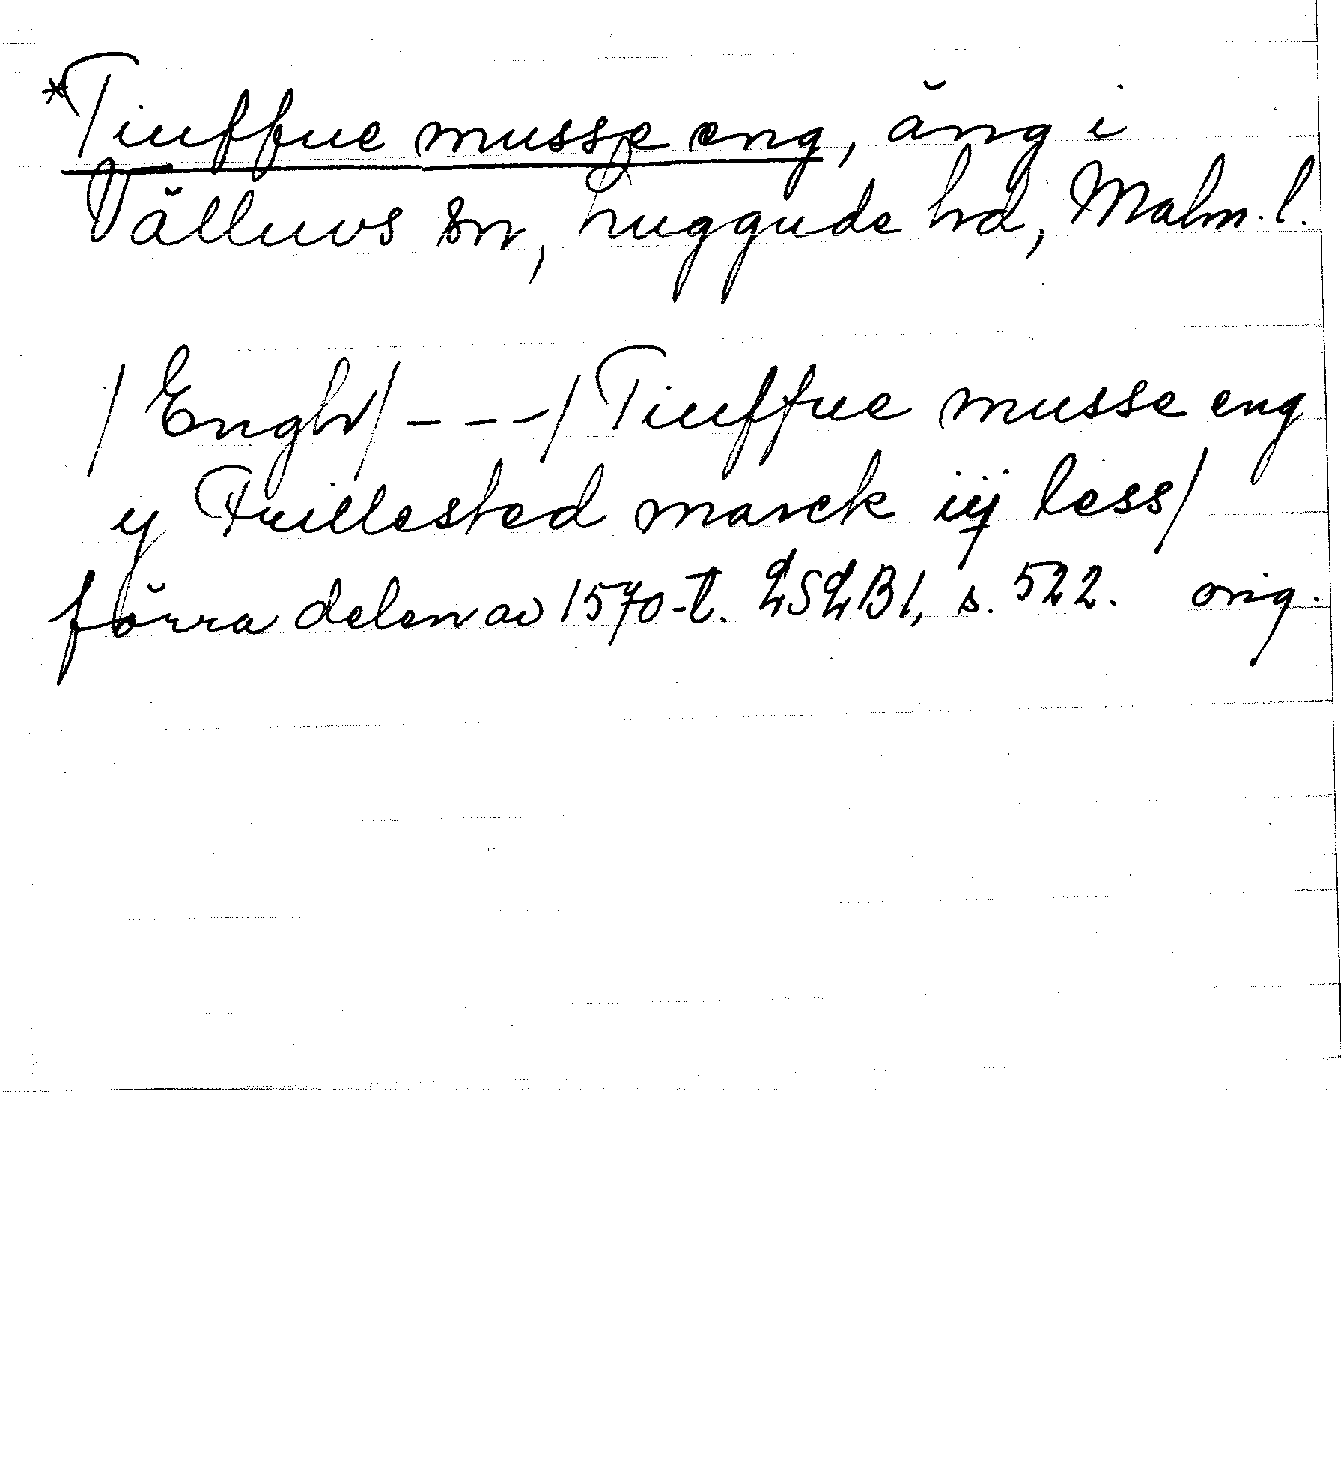 *Tiuffue musse eng, äng i
Välluvs sn, Luggude hd, Malm. l.
/Engh/ - - - / Tiuffue musse eng
y Fuillested marck iij less/
förra delen av 1570-t. LSLB1, s. 522. orig.